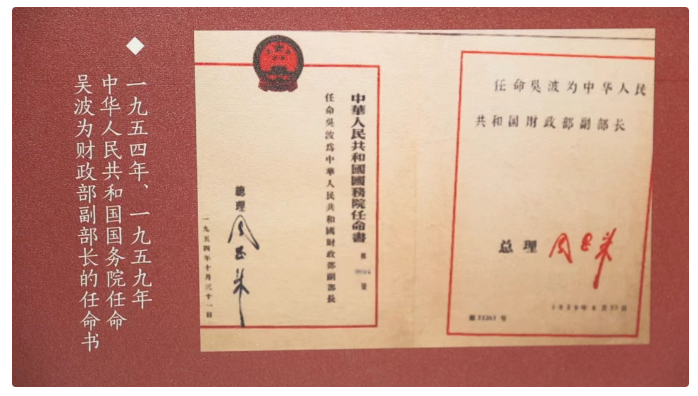 ◆ 一九五四年、一九五九年
中华人民共和国国务院任命
吴波为财政部副部长的任命书
中華人民共和國國務院任命書
第 號
任命吳波爲中華人民共和國財政部副部長
總理 周恩来
一九五四年十月三十一日
任命吴波为中华人民
共和国财政部副部长
总理 周恩来
1959年 月 日
第 号